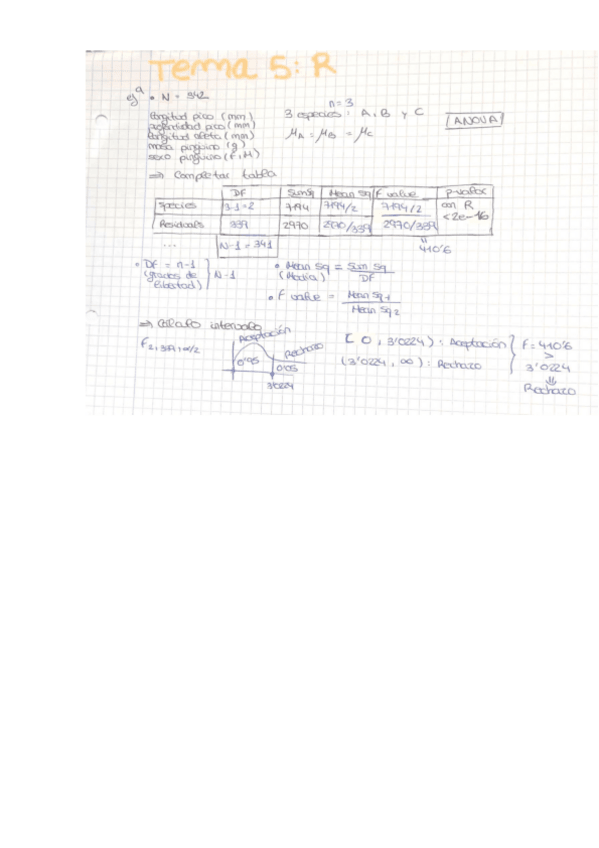 Tema 5: R
ejª • N = 342
n = 3
Longitud pico (mm)
profundidad pico (mm)
Longitud aleta (mm)
masa pingüino (g)
sexo pingüino (F, M)
3 especies: A, B y C
ANOVA
μA = μB = μC
⇒ Completar tabla
DF Sum Sq Mean Sq F value p-valor
Species 3-1=2 7194 7194/2 7194/2 con R
Residuals 339 2970 2970/339 2970/339 <2e-16
... N-1 = 341
410'6
• DF = n-1
(grados de
libertad)
N-1
• Mean Sq = Sum Sq / DF
(Media)
• F value = Mean Sq1 / Mean Sq2
⇒ Cálculo intervalo
F2, 339, α/2
Aceptación
Rechazo
0'95
0'05
3'0224
[0, 3'0224): Aceptación
(3'0224, ∞): Rechazo
F = 410'6
>
3'0224
⇓
Rechazo